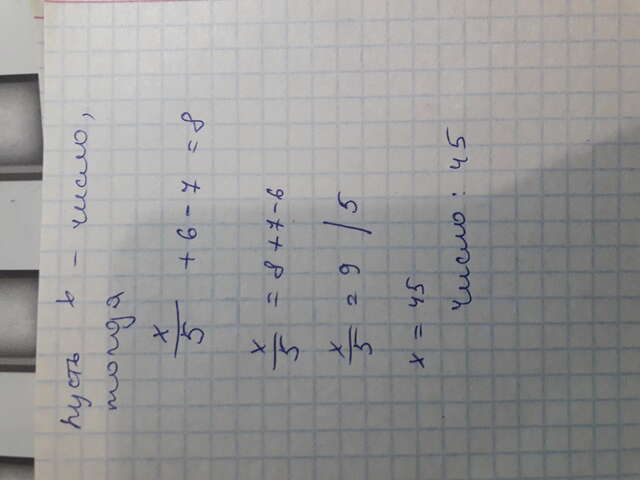 пусть x - число,
тогда
x/5 + 6 - 7 = 8
x/5 = 8 + 7 - 6
x/5 = 9 / 5
x = 45
число: 45